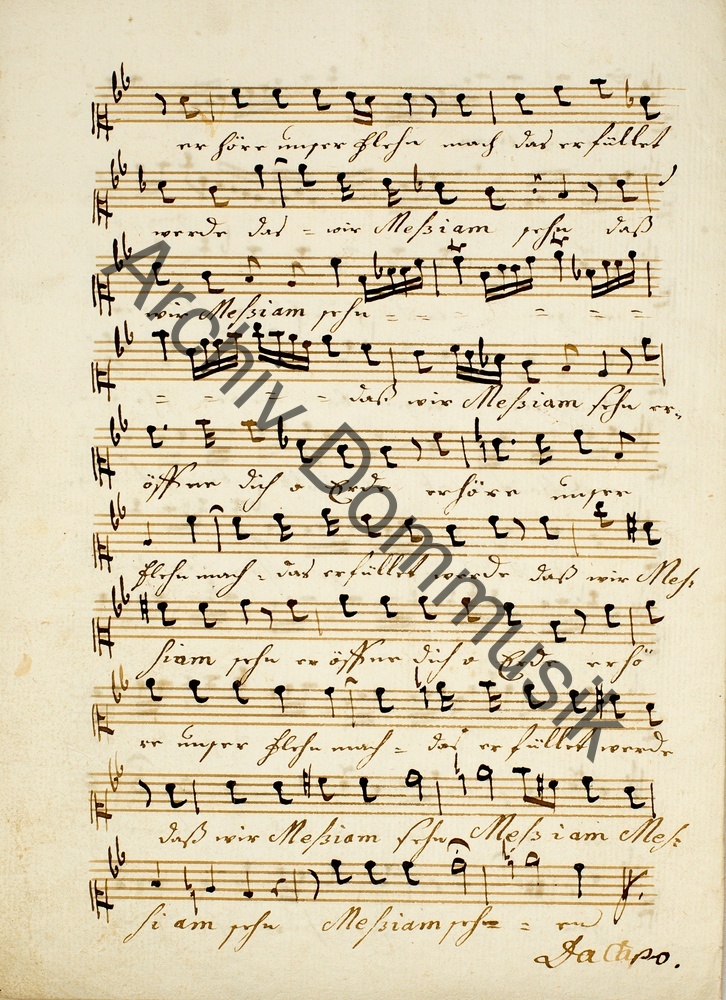 erhöre unser Flehn mach das erfüllet
werde das = wir Meßiam sehn daß
wir Meßiam sehn = = = = = =
= = = = = daß wir Meßiam sehn er=
öffne dich o Erde erhöre unser
Flehn mach = das erfüllet werde daß wir Meß=
siam sehn eröffne dich o Erde erhö
re unser Flehn mach = das erfüllet werde
daß wir Meßiam sehn Meßiam Meß=
siam sehn Meßiam sehn = = en
Da Capo.
Archiv Dommusik